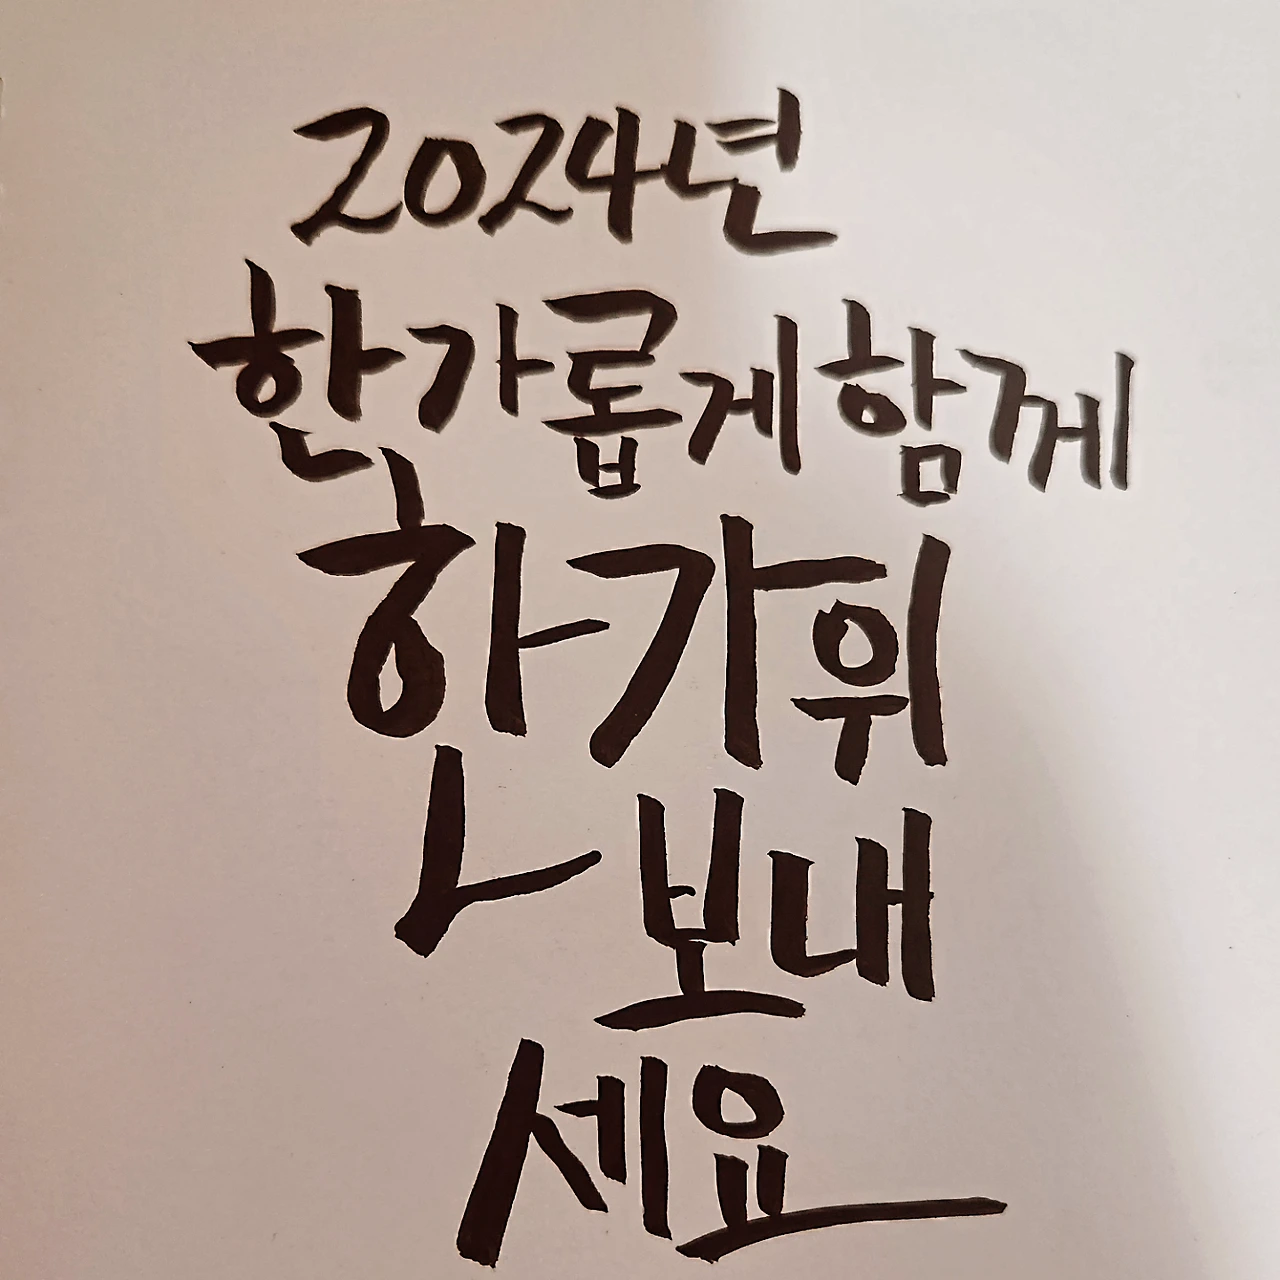 2024년
한가롭게함께
한가위
보내
세요